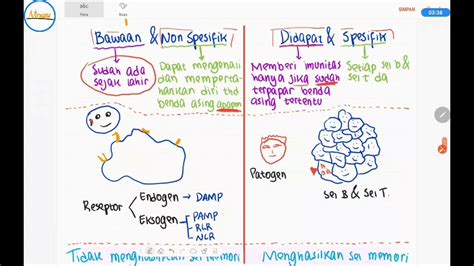 abc
SIMPAN
03:38
Bawaan & Non Spesifik
Didapat & Spesifik
Sudah ada
sejak lahir
Dapat mengenali
dan memperta-
hankan diri thd
benda asing apapun
Memberi imunitas
hanya jika sudah
terpapar benda
asing tertentu
Setiap sel B &
sel T da
Patogen
Sel B & Sel T.
Reseptor
Endogen → DAMP
Eksogen
PAMP
RLR
NLR
Tidak menghasilkan sel memori
Menghasilkan sel memori